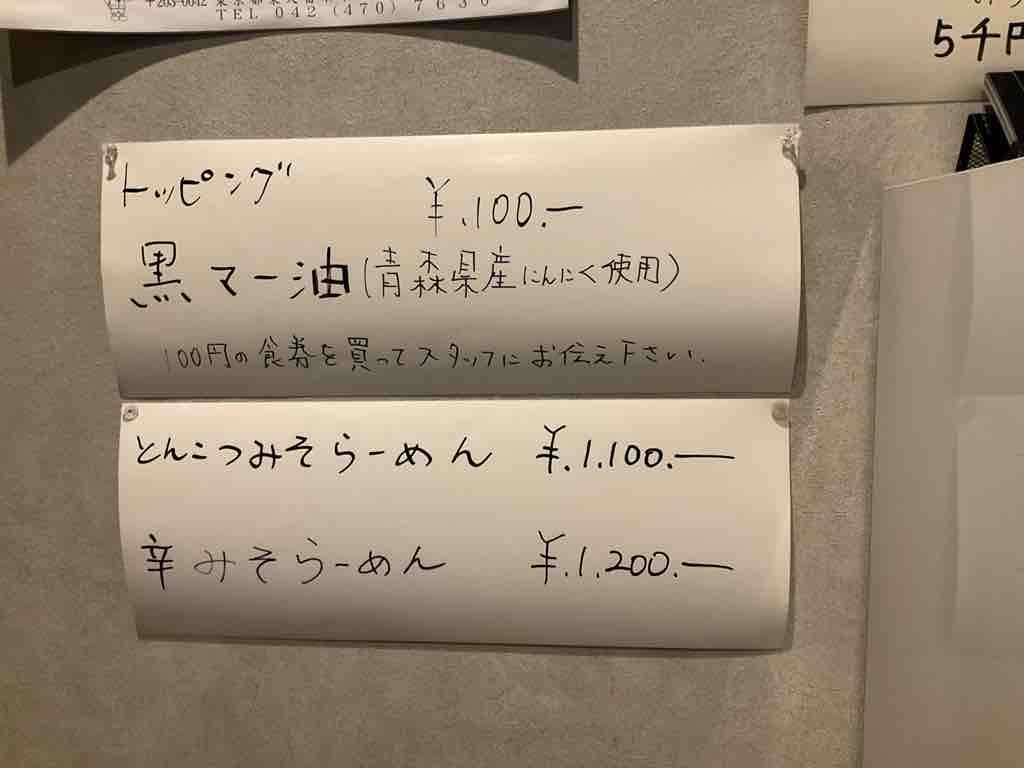 〒203-0042 東京都東久留米市
TEL 042 (470) 7630
5千円
トッピング
¥.100.—
黒マー油(青森県産にんにく使用)
100円の食券を買ってスタッフにお伝え下さい.
とんこつみそらーめん ¥.1.100.—
辛みそらーめん ¥.1.200.—